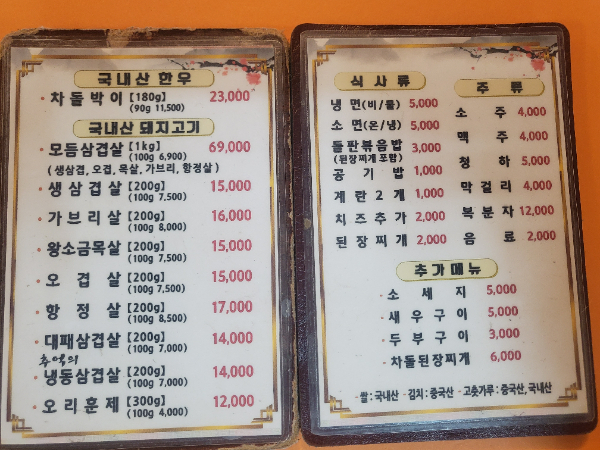 국내산 한우
차돌박이 [180g] 23,000
(90g 11,500)
국내산 돼지고기
모듬삼겹살 [1kg] 69,000
(100g 6,900)
(생삼겹, 오겹, 목살, 가브리, 항정살)
생삼겹살 [200g] 15,000
(100g 7,500)
가브리살 [200g] 16,000
(100g 8,000)
왕소금목살 [200g] 15,000
(100g 7,500)
오겹살 [200g] 15,000
(100g 7,500)
항정살 [200g] 17,000
(100g 8,500)
대패삼겹살 [200g] 14,000
(100g 7,000)
추억의
냉동삼겹살 [200g] 14,000
(100g 7,000)
오리훈제 [300g] 12,000
(100g 4,000)
식사류
냉면(비/물) 5,000
소면(온/냉) 5,000
돌판볶음밥 3,000
(된장찌개 포함)
공기밥 1,000
계란2개 1,000
치즈추가 2,000
된장찌개 2,000
주류
소주 4,000
맥주 4,000
청하 5,000
막걸리 4,000
복분자 12,000
음료 2,000
추가메뉴
소세지 5,000
새우구이 5,000
두부구이 3,000
차돌된장찌개 6,000
·쌀:국내산 ·김치:중국산 ·고춧가루:중국산,국내산